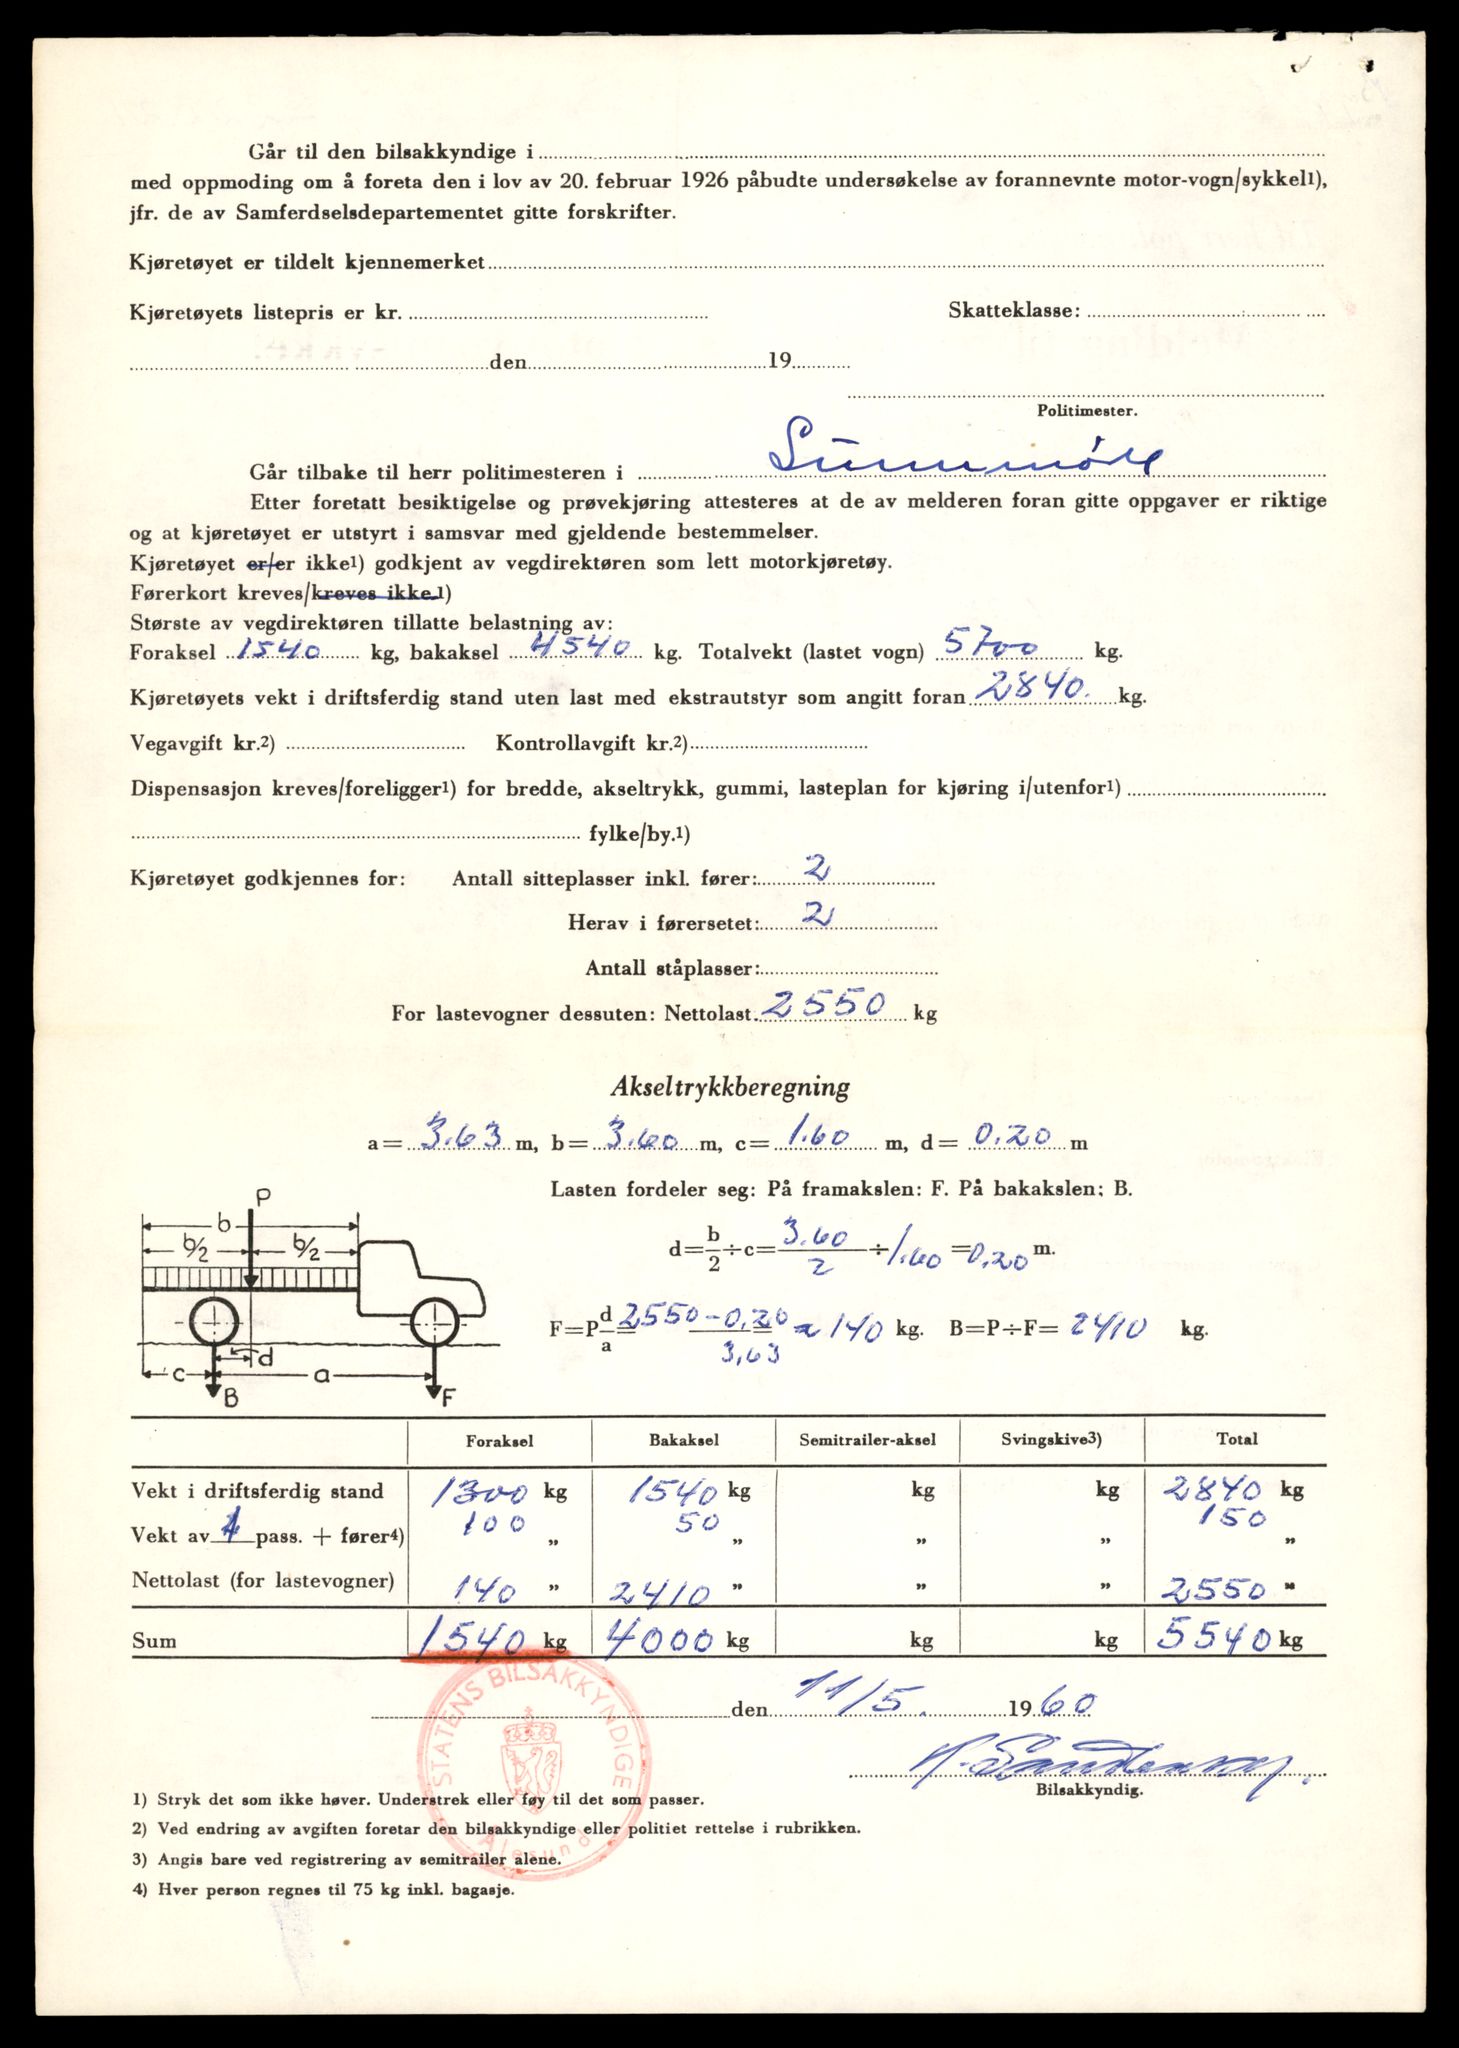 Går til den bilsakkyndige i
med oppmoding om å foreta den i lov av 20. februar 1926 påbudte undersøkelse av forannevnte motor-vogn/sykkel1),
jfr. de av Samferdselsdepartementet gitte forskrifter.
Kjøretøyet er tildelt kjennemerket
Kjøretøyets listepris er kr. Skatteklasse:
den 19
Politimester.
Går tilbake til herr politimesteren i Sunnmøre
Etter foretatt besiktigelse og prøvekjøring attesteres at de av melderen foran gitte oppgaver er riktige
og at kjøretøyet er utstyrt i samsvar med gjeldende bestemmelser.
Kjøretøyet er/er ikke1) godkjent av vegdirektøren som lett motorkjøretøy.
Førerkort kreves/kreves ikke.1)
Største av vegdirektøren tillatte belastning av:
Foraksel 1540 kg, bakaksel 4540 kg. Totalvekt (lastet vogn) 5700 kg.
Kjøretøyets vekt i driftsferdig stand uten last med ekstrautstyr som angitt foran 2840. kg.
Vegavgift kr.2) Kontrollavgift kr.2)
Dispensasjon kreves/foreligger1) for bredde, akseltrykk, gummi, lasteplan for kjøring i/utenfor1)
fylke/by.1)
Kjøretøyet godkjennes for: Antall sitteplasser inkl. fører: 2
Herav i førersetet: 2
Antall ståplasser:
For lastevogner dessuten: Nettolast. 2550 kg
Akseltrykkberegning
a = 3.63 m, b = 3.60 m, c = 1.60 m, d = 0.20 m
Lasten fordeler seg: På framakslen: F. På bakakslen: B.
d = b/2 ÷ c = 3.60/2 ÷ 1.60 = 0,20 m.
F = P d/a = 2550 - 0,20 / 3,63 = 140 kg. B = P ÷ F = 2410 kg.
P
b
b/2 b/2
d
c a
B F
Foraksel Bakaksel Semitrailer-aksel Svingskive3) Total
Vekt i driftsferdig stand 1300 kg 1540 kg kg kg 2840 kg
Vekt av 1 pass. + fører4) 100 „ 50 „ „ „ 150 „
Nettolast (for lastevogner) 140 „ 2410 „ „ „ 2550 „
Sum 1540 kg 4000 kg kg kg 5540 kg
den 11/5. 1960
STATENS BILSAKKYNDIGE
Ålesund
Bilsakkyndig.
1) Stryk det som ikke høver. Understrek eller føy til det som passer.
2) Ved endring av avgiften foretar den bilsakkyndige eller politiet rettelse i rubrikken.
3) Angis bare ved registrering av semitrailer alene.
4) Hver person regnes til 75 kg inkl. bagasje.